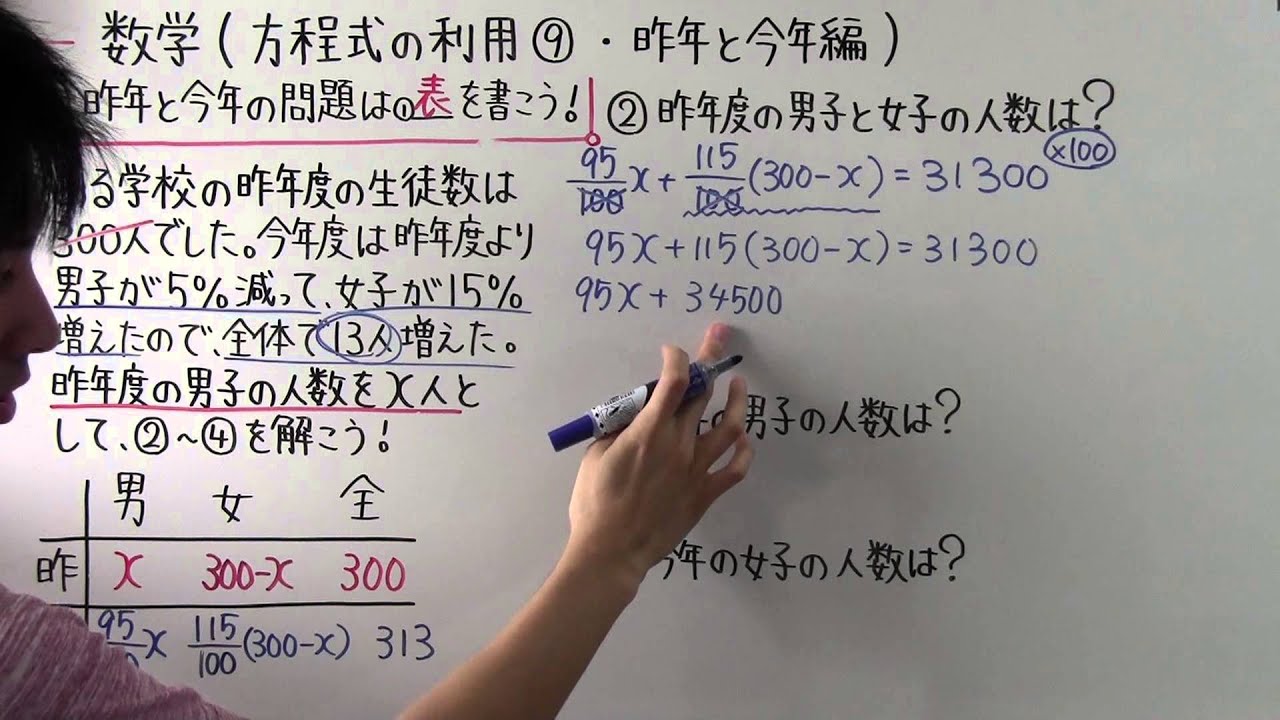 数学(方程式の利用⑨・昨年と今年編)
昨年と今年の問題は①表を書こう!
る学校の昨年度の生徒数は
300人でした。今年度は昨年度より
男子が5%減って、女子が15%
増えたので、全体で13人増えた。
昨年度の男子の人数をx人と
して、②~④を解こう!
男 女 全
昨 x 300-x 300
95 x 115/100(300-x) 313
②昨年度の男子と女子の人数は?
×100
95/100x+115/100(300-x)=31300
95x+115(300-x)=31300
95x+34500
の男子の人数は?
今年の女子の人数は?